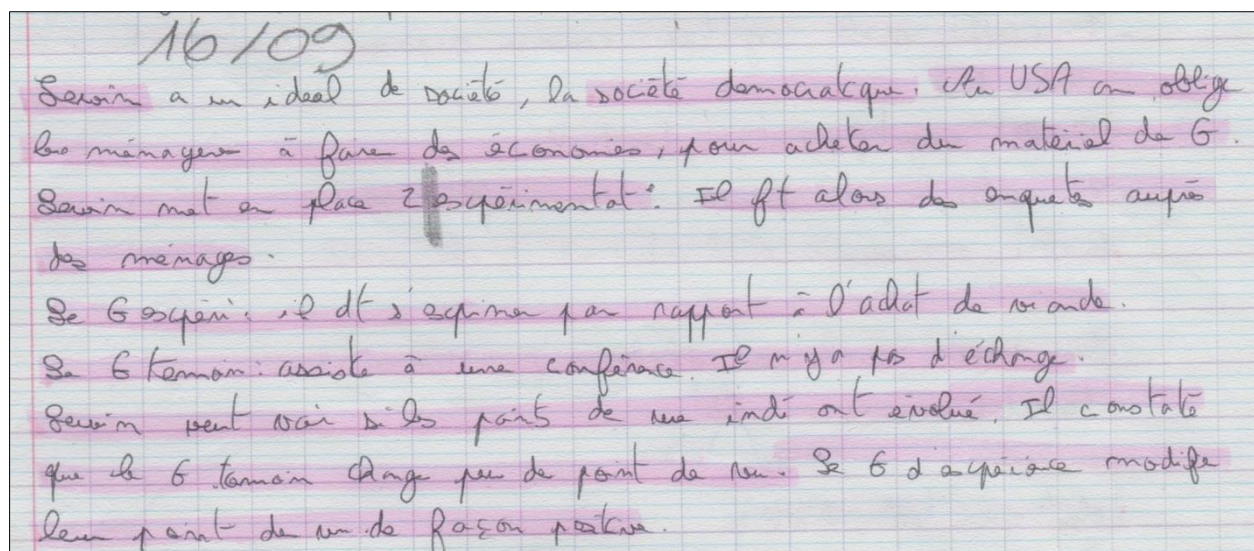 16/09
Lewin a un idéal de société, la société democratique. Au USA on oblige
les ménagere à faire des économies, pour acheter du matériel de G.
Lewin met en place 2 expérimentat°. Il ft alors des enquetes auprès
des ménages.
Le G expéri : il dt s'exprimer par rapport à l'achat de viande.
Le G temoin : assiste à une conférence. Il n'y a pas d'échange.
Lewin veut voir si les points de vue indi ont évolué. Il constate
que le G temoin change peu de point de vue. Le G d'expérience modifie
leur point de vue de façon positive.